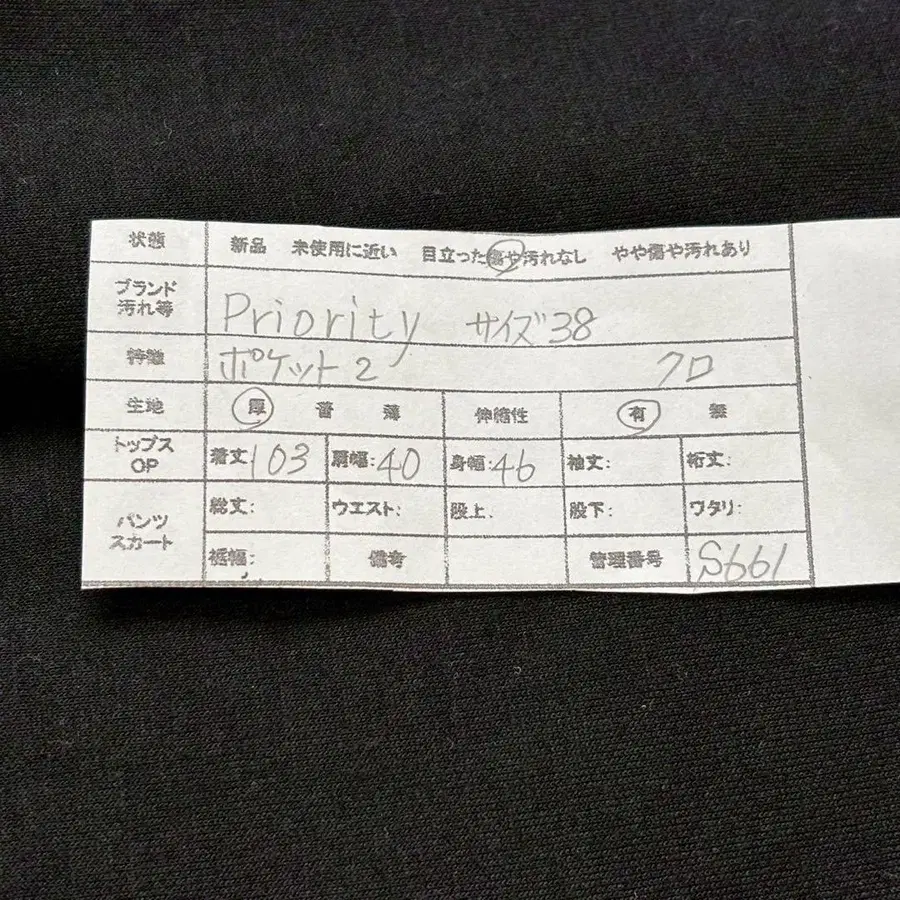 状態 新品 未使用に近い 目立った傷や汚れなし やや傷や汚れあり
ブランド
汚れ等
Priority サイズ38
特徴 ポケット2 クロ
生地 厚 普 薄 伸縮性 有 無
トップス
OP
着丈:103 肩幅:40 身幅:46 袖丈: 裄丈:
パンツ
スカート
総丈: ウエスト: 股上: 股下: ワタリ:
裾幅: 備考 管理番号 S661